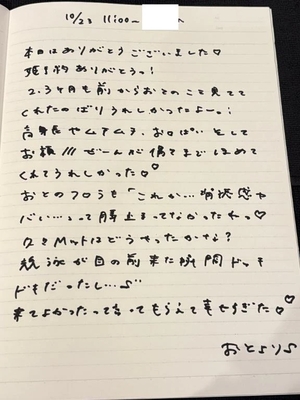 10/23 11:00~
本日はありがとうございました♡
姫予約ありがとうっ!
2.3ヶ月も前からおとのこと見てて
くれたのばりうれしかったよーっ!
高身長やムチムチ、お口ぱい そして
お顔///ぜーんが偽てまどほめて
くれてうれしかった♡
おとのフロうも「これか…背徳感や
バい…」って 止まってなかったわっ♡
Mットはどうやったかな?
が目の前来た瞬間ドッキ
ドキだったし…♪
来てよかったって言ってもらえて幸せすぎた♡
おとより♪